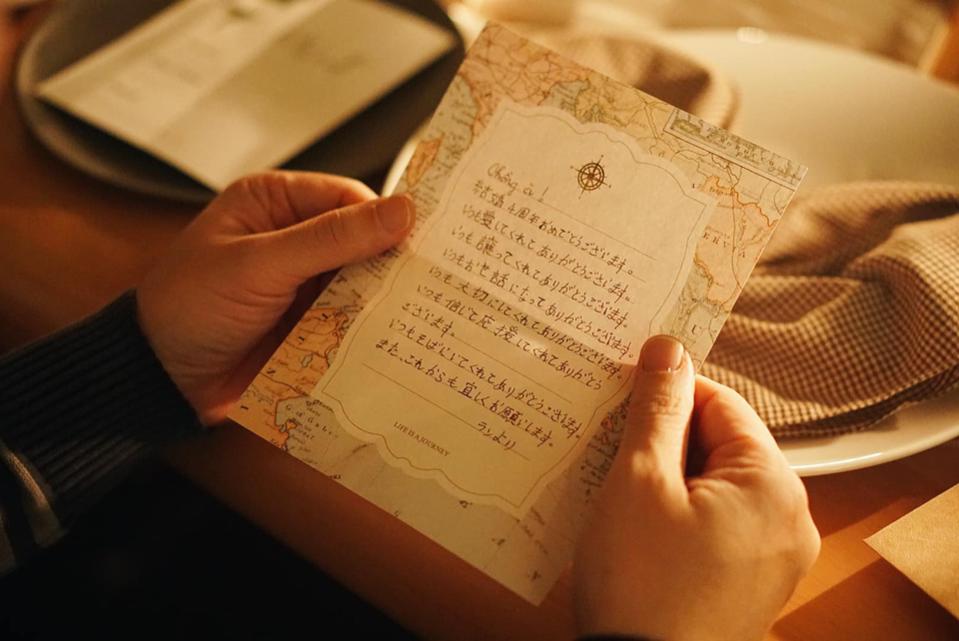 Chồng à!
結婚4周年おめでとうございます。
いつも愛してくれてありがとうございます。
いつも護ってくれてありがとうございます。
いつもお世話になってありがとうございます。
いつも大切にしてくれてありがとうございます。
いつも信じて応援してくれてありがとう
ございます。
いつもそばにいてくれてありがとうございます。
また、これからも宜しくお願いします。
ランより
LIFE IS A JOURNEY